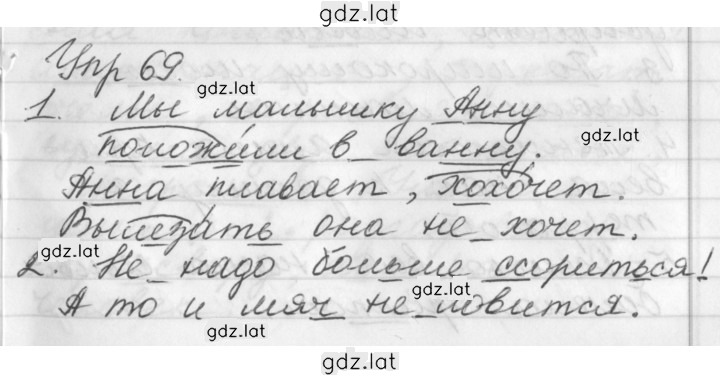 gdz.lat
Упр 69.
gdz.lat
1. Мы малышку Анну
gdz.lat
положили в ванну.
Анна плавает, хохочет.
Вылезать она не хочет.
2. Не надо больше ссориться!
gdz.lat
А то и мяч не ловится.
gdz.lat
gdz.lat